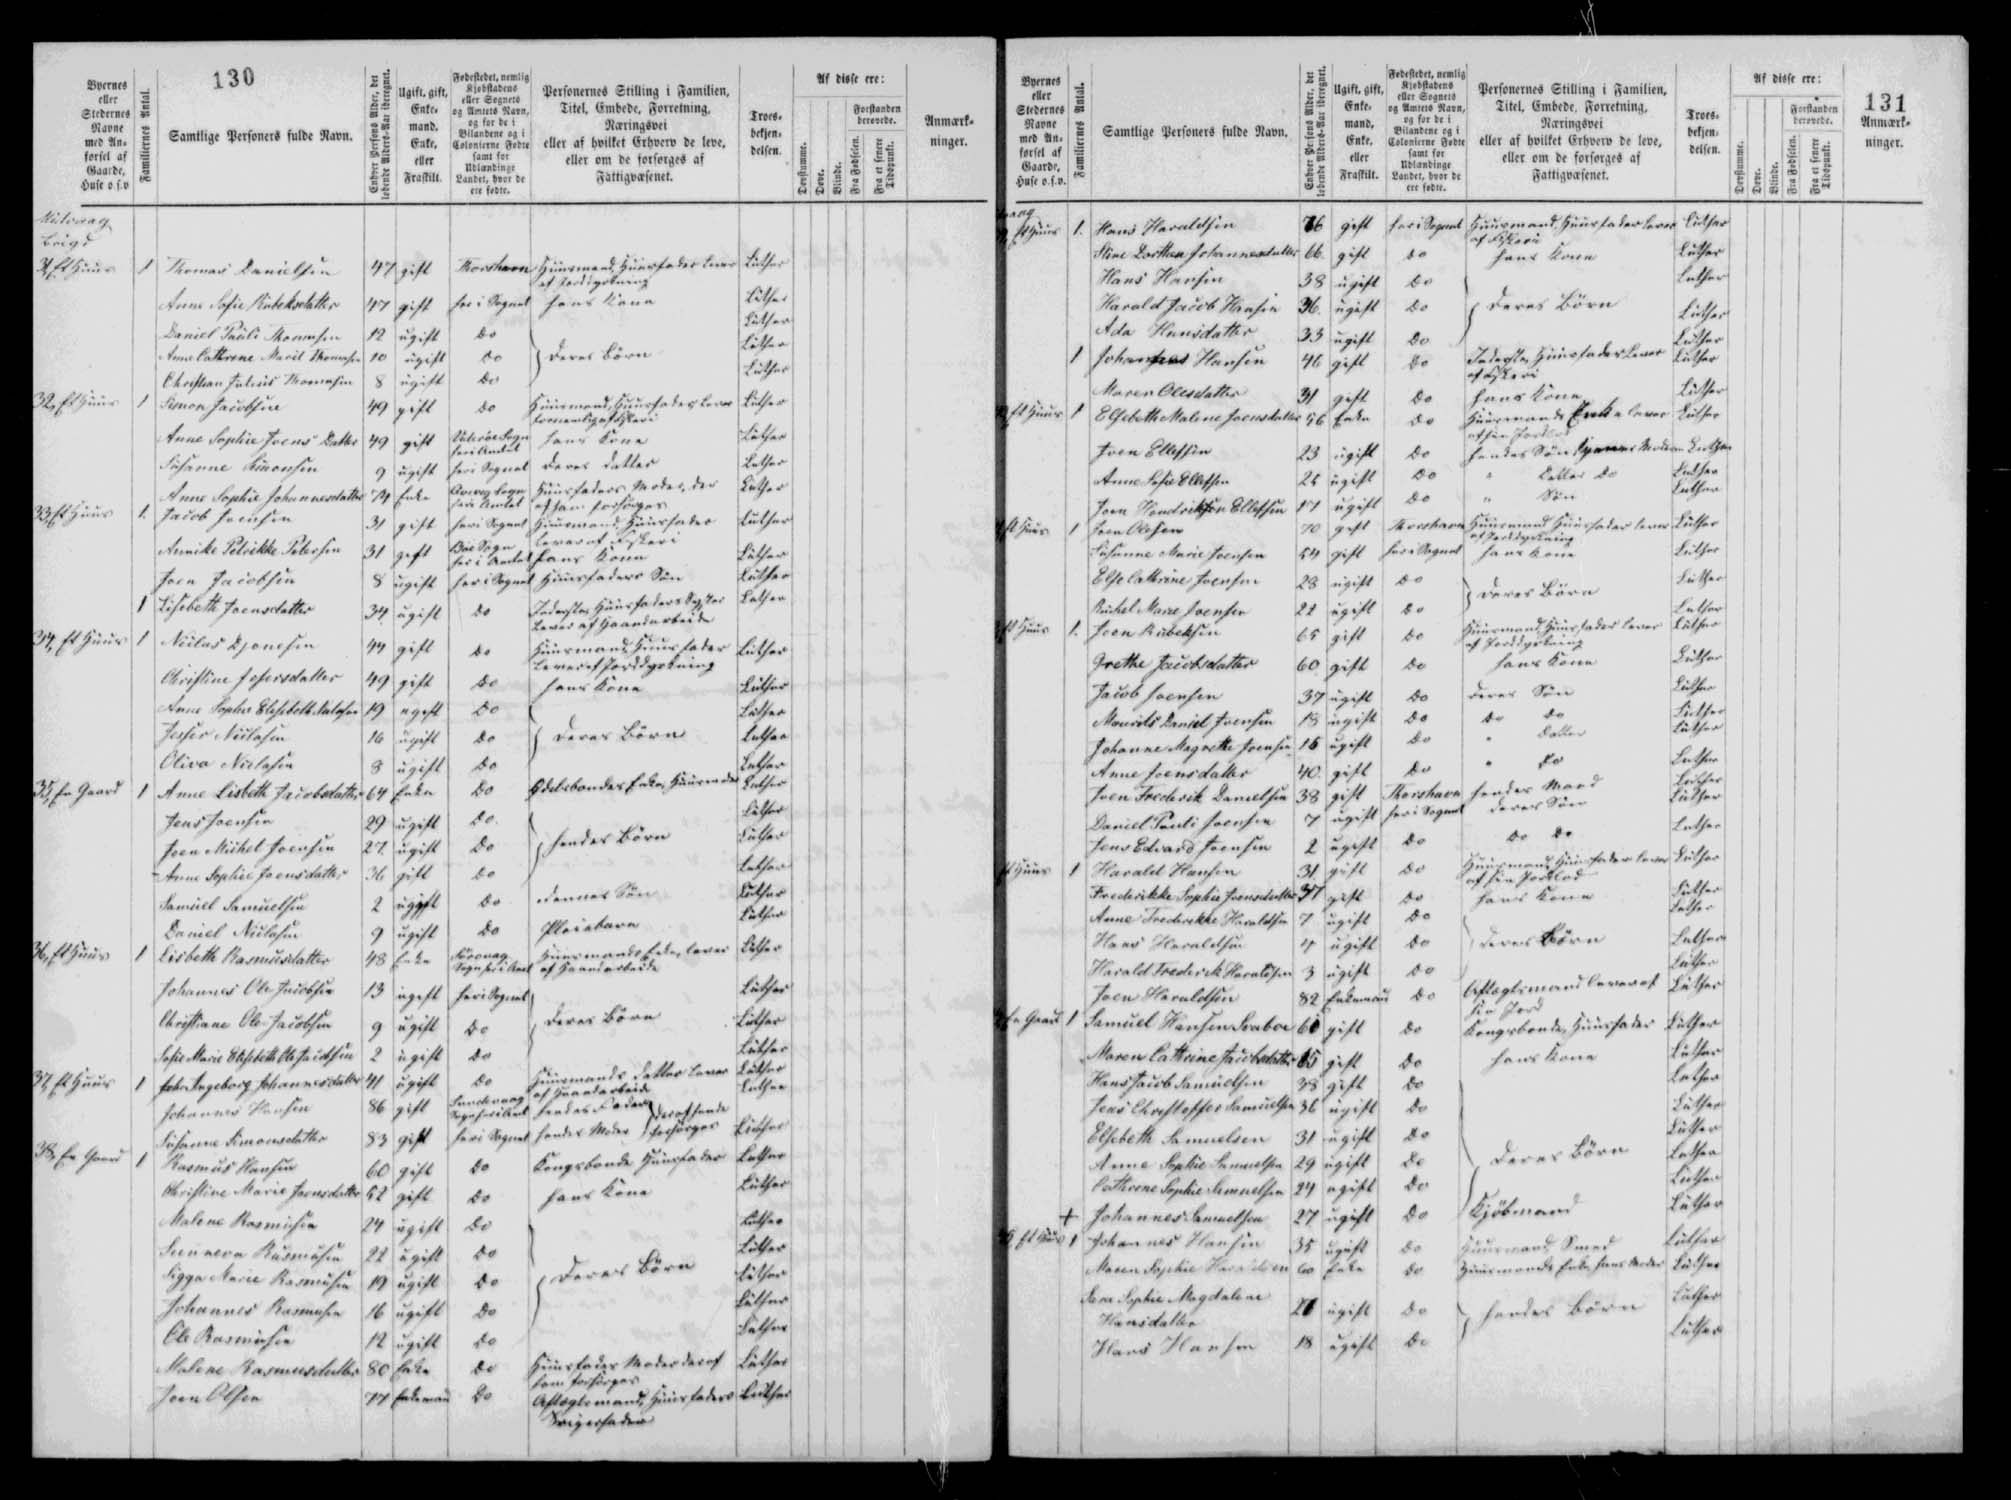 130
Byernes eller Stedernes Navne med Anførsel af Gaarde, Huse o.s.v
Familiernes Antal.
Samtlige Personers fulde Navn.
Enhver Persons Alder, det løbende Alders-Aar iberegnet.
Ugift, gift, Enkemand, Enke, eller Fraskilt.
Fødestedet, nemlig Kjøbstadens eller Sognets og Amtets Navn, og for de i Bilandene og i Colonierne Fødte samt for Udlændinge Landet, hvor de ere fødte.
Personernes Stilling i Familien, Titel, Embede, Forretning, Næringsvei eller af hvilket Erhverv de leve, eller om de forsørges af Fattigvæsenet.
Troesbekjendelsen.
Af disse ere:
Døvstumme.
Døve.
Blinde.
Forstanden berøvede.
Fra Fødselen.
Fra et senere Tidspunkt.
Anmærkninger.
Midvaag
Bøigd
31, Et Huus 1 Thomas Danielsen 47 gift Thorshavn Huusmand, Huusfader lever af Jorddyrkning Luther
Anne Sofie Rubeksdatter 47 gift her i Sognet hans Kone Luther
Daniel Pauli Thomsen 12 ugift do Luther
Anne Cathrine Marit Thomsen 10 ugift do deres Børn Luther
Christian Julius Thomsen 8 ugift do Luther
32, Et Huus 1 Simon Jacobsen 49 gift do Huusmand, Huusfader lever fornemlig af Fiskeri Luther
Anne Sophie Joens Datter 49 gift Sogn her i Amtet hans Kone Luther
Susanne Simonsen 9 ugift her i Sognet deres Datter Luther
Anne Sophie Johannesdatter 74 Enke Sogn her i Amtet Huusfaders Moder, der af ham forsørges Luther
33, Et Huus 1. Jacob Joensen 31 gift her i Sognet Huusmand, Huusfader lever af Fiskeri Luther
Annike Petrikke Petersen 31 gift Bøe Sogn her i Amtet hans Kone Luther
Joen Jacobsen 8 ugift her i Sognet Huusfaders Søn Luther
1 Lisebeth Joensdatter 34 ugift do Inderste, Huusfaders Søster lever af Haandarbeide Luther
34, Et Huus 1 Niclas Djonesen 44 gift do Huusmand, Huusfader lever af Jorddyrkning Luther
Christine Jespersdatter 49 gift do hans Kone Luther
Anne Sophie Elisebeth Niclasen 19 ugift do Luther
Jesper Niclasen 16 ugift do deres Børn Luther
Oliva Niclasen 8 ugift do Luther
35, En Gaard 1 Anne Lisbeth Jacobsdatter 64 Enke do Odelsbondes Enke, Huusmoder Luther
Jens Joensen 29 ugift do. Luther
Joen Michel Joensen 27. ugift do hendes Børn Luther
Anne Sophie Joensdatter 36 gift do Luther
Samuel Samuelsen 2 ugift do dennes Søn Luther
Daniel Niclasen 9 ugift do Pleiebarn Luther
36, Et Huus 1 Lisbeth Rasmusdatter 48 Enke Sørvaag Sogn her i Amt Huusmands Enke, lever af Haandarbeide Luther
Johannes Ole Jacobsen 13 ugift her i Sognet Luther
Christiane Ole Jacobsen 9 ugift do deres Børn Luther
Sofie Marie Elisebeth Ole Jacobsen 2 ugift do Luther
37, Et Huus 1 Ingeborg Johannesdatter 41 ugift do Huusmands Datter lever af Haandarbeide Luther
Johannes Hansen 86 gift Sandevaag Sogn her i Amt hendes Fader Luther
Susanne Simonsdatter 83 gift her i Sognet hendes Moder der af hende forsørges Luther
38, En Gaard 1 Rasmus Hansen 60 gift do Kongsbonde Huusfader Luther
Christine Marie Joensdatter 52 gift do hans Kone Luther
Malene Rasmusen 24 ugift do Luther
Sunneva Rasmusen 22 ugift do Luther
Sigga Marie Rasmusen 19 ugift do deres Børn Luther
Johannes Rasmusen 16 ugift do Luther
Ole Rasmusen 12 ugift do Luther
Malene Rasmusdatter 80 Enke do Huusfaders Moder der af ham forsørges Luther
Joen Olsen 77 Enkemand do Aftægtsmand, Huusfaders Svigerfader Luther
131
Byernes eller Stedernes Navne med Anførsel af Gaarde, Huse o.s.v.
Familiernes Antal.
Samtlige Personers fulde Navn.
Enhver Persons Alder, det løbende Alders-Aar iberegnet.
Ugift, gift, Enkemand, Enke, eller Fraskilt.
Fødestedet, nemlig Kjøbstadens eller Sognets og Amtets Navn, og for de i Bilandene og i Colonierne Fødte samt for Udlændinge Landet, hvor de ere fødte.
Personernes Stilling i Familien, Titel, Embede, Forretning, Næringsvei eller af hvilket Erhverv de leve, eller om de forsørges af Fattigvæsenet.
Troesbekjendelsen.
Af disse ere:
Døvstumme.
Døve.
Blinde.
Forstanden berøvede.
Fra Fødselen.
Fra et senere Tidspunkt.
Anmærkninger.
Et Huus 1. Hans Haraldsen 76 gift her i Sognet Huusmand, Huusfader lever af Fiskeri Luther
Stine Dorthea Johannesdatter 66. gift do hans Kone Luther
Hans Hansen 38 ugift do Luther
Harald Jacob Hansen 36. ugift do deres Børn Luther
Ada Hansdatter 33 ugift do Luther
1 Johannes Hansen 46 gift do Inderste, Huusfader lever af Fiskeri Luther
Maren Olesdatter 31 gift do hans Kone Luther
Et Huus 1 Elsebeth Malene Joensdatter 56 Enke do Huusmands Enke lever af sin Jordlod Luther
Joen Ellefsen 23 ugift do hendes Søn Moderen Luther
Anne Sofie Ellefsen 25 ugift do " Datter do Luther
Joen Hendriksen Ellefsen 17 ugift do " Søn Luther
Et Huus 1 Joen Olesen 70 gift Thorshavn Huusmand Huusfader lever af Jorddyrkning Luther
Susanne Marie Joensen 54 gift her i Sognet hans Kone Luther
Else Cathrine Joensen 28 ugift do deres Børn Luther
Rachel Marie Joensen 22 ugift do Luther
Et Huus 1. Joen Rubeksen 65 gift do Huusmand, Huusfader lever af Jorddyrkning Luther
Grethe Jacobsdatter 60 gift do hans Kone Luther
Jacob Joensen 37 ugift do deres Søn Luther
Maurits Daniel Joensen 18 ugift do do do Luther
Johanne Magrethe Joensen 15 ugift do " Datter Luther
Anne Joensdatter 40. gift do " do Luther
Joen Frederik Danielsen 38 gift Thorshavn hendes Mand Luther
Daniel Pauli Joensen 7 ugift her i Sognet deres Søn Luther
Jens Edvard Joensen 2 ugift do do do Luther
Et Huus 1 Harald Hansen 31 gift do Huusmand, Huusfader lever af sin Jordlod Luther
Frederikke Sophie Joensdatter 37 gift do hans Kone Luther
Anne Frederikke Haraldsen 7 ugift do Luther
Hans Haraldsen 4 ugift do deres Børn Luther
Harald Frederik Haraldsen 3 ugift do Luther
Joen Haraldsen 82 Enkemand do Aftægtsmand lever af sin Jord Luther
En Gaard 1 Samuel Hansen Svaboe 60 gift do Kongsbonde, Huusfader Luther
Maren Cathrine Jacobsdatter 65 gift do hans Kone Luther
Hans Jacob Samuelsen 38 gift do Luther
Jens Christoffer Samuelsen 36 ugift do Luther
Elsebeth Samuelsen 31 ugift do Luther
Anne Sophie Samuelsen 29 ugift do deres Børn Luther
Cathrine Sophie Samuelsen 24 ugift do Luther
+ Johannes Samuelsen 27 ugift do Kjøbmand Luther
Et Huus 1 Johannes Hansen 35 ugift do Huusmand, Smed Luther
Maren Sophie Haraldsen 60 Enke do Huusmands Enke, hans Moder Luther
Sara Sophie Magdalene
Hansdatter 21 ugift do hendes Børn Luther
Hans Hansen 18 ugift do Luther